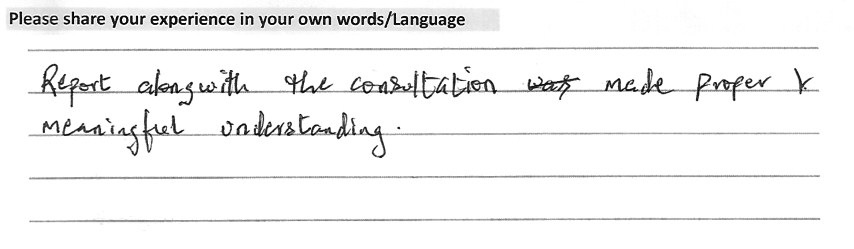 Please share your experience in your own words/Language
Report alongwith the consultation was made proper &
meaningful understanding.